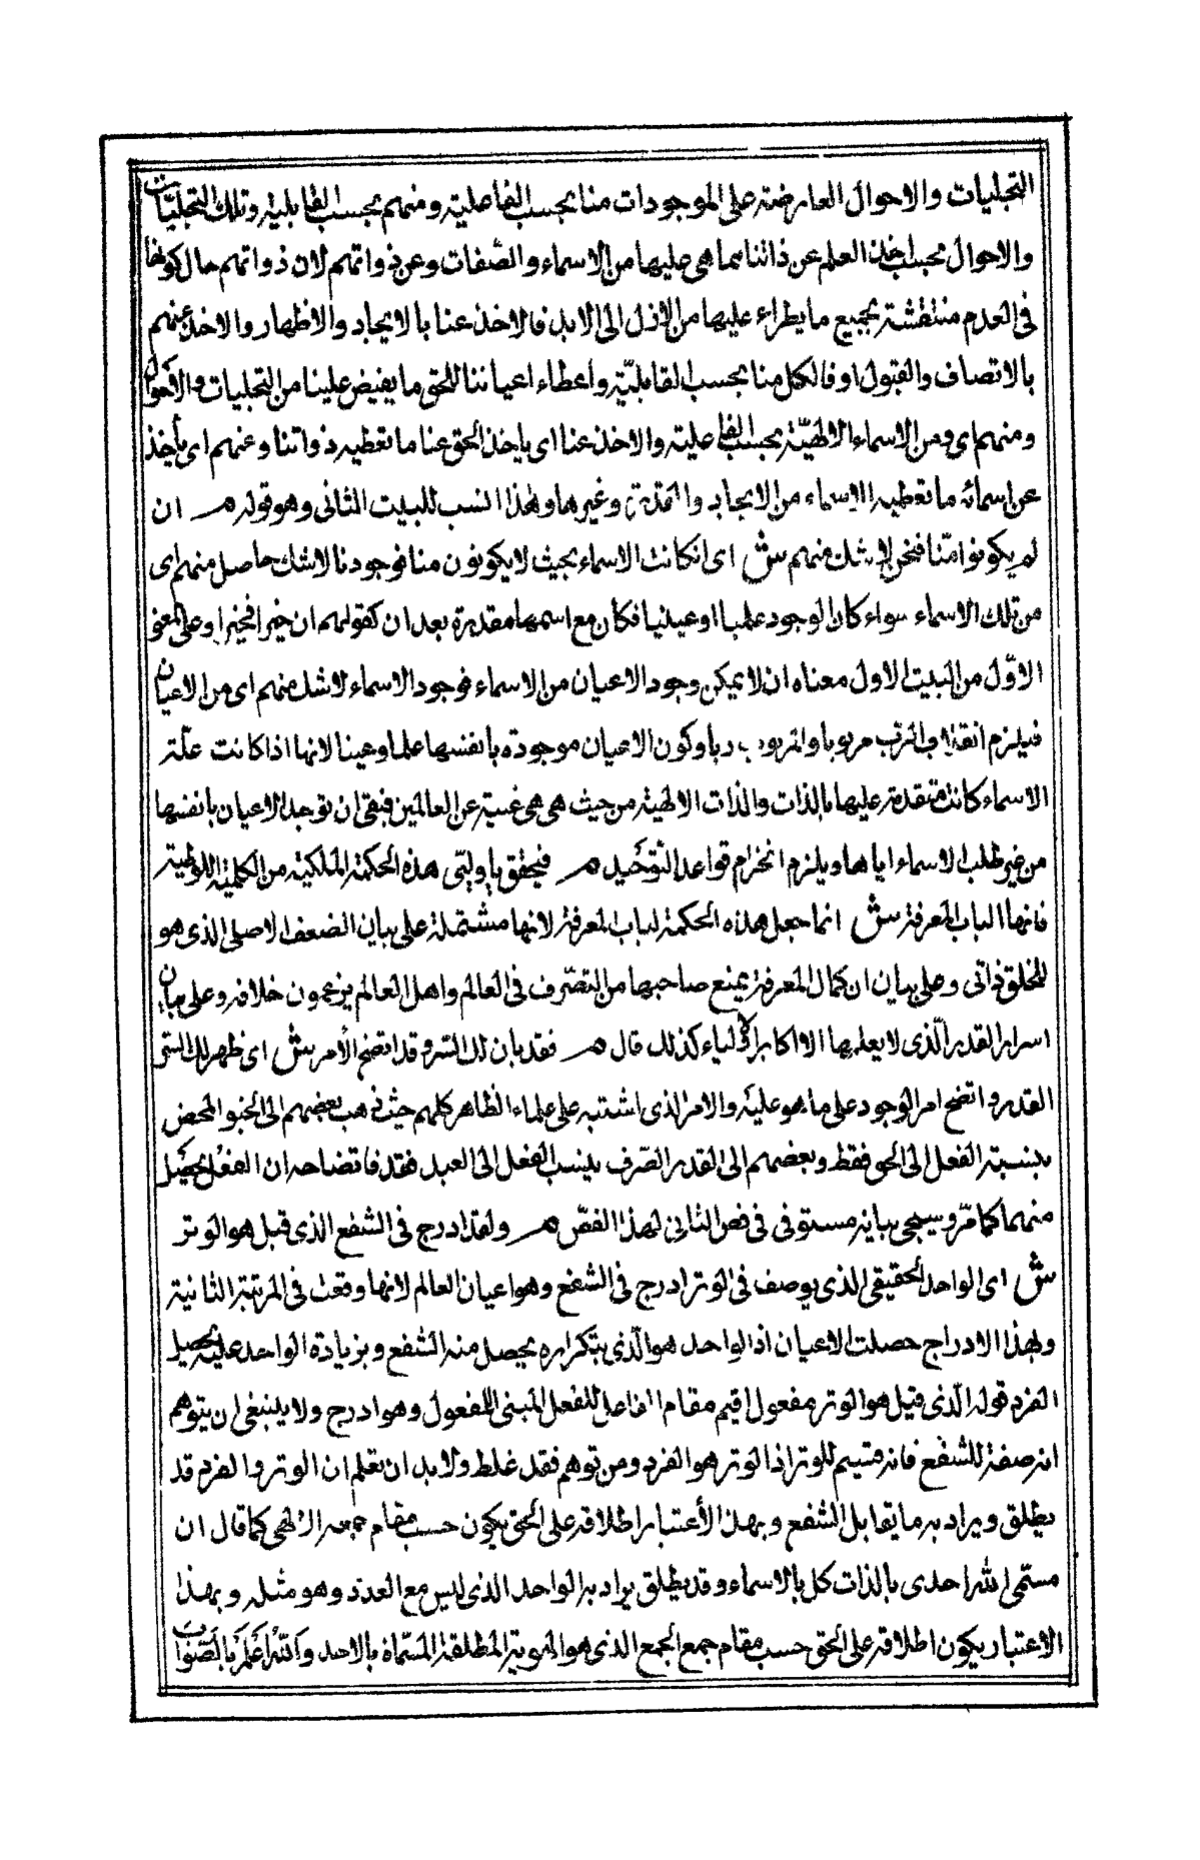 التجليات والاحوال العارضة على الموجودات منا بحسب الفاعلية ومنهم بحسب القابلية وتلك التجليات
والاحوال بحسب اخذ العلم عن ذاتنا بما هى عليها من الاسماء والصّفات وعن ذواتهم لان ذواتهم حال كونها
فى العدم منتقشة بجميع ما يطراء عليها من الازل الى الابد فالاخذ عنا بالايجاد والاظهار والاخذ عنهم
بالاتصاف والقبول او فالكل منا بحسب القابليّة واعطاء اعياننا للحق ما يفيض علينا من التجليات والاحوال
ومنهم اى ومن الاسماء الالهيّة بحسب الفاعلية والاخذ عنا اى ياخذ الحق عنا ما تعطيه ذواتنا وعنهم اى يأخذ
عن اسمائه ما تعطيه الاسماء من الايجاد والقدرة وغيرها وهذا انسب للبيت الثانى وهو قوله م ان
لم يكونوا منّا فنحن لا شك منهم ش اى انكانت الاسماء بحيث لا يكونون منا فوجودنا لاشك حاصل منهم اى
من تلك الاسماء سواء كان الوجود علميا او عينيا فكان مع اسمها مقدرة بعد ان كقولهم ان خيرا فخيرا وعلى المعنى
الاوّل من البيت الاول معناه ان لا يمكن وجود الاعيان من الاسماء فوجود الاسماء لاشك منهم اى من الاعيان
فيلزم انقلاب الرّب مربوبا والمربوب ربا وكون الاعيان موجودة بانفسها علما وعينا لانها اذا كانت علّة
الاسماء كانت متقدمة عليها بالذات والذات الالهية من حيث هى هى غنية عن العالمين فبقى ان توجد الاعيان بانفسها
من غير طلب الاسماء اياها ويلزم انخرام قواعد التوحيد م فتحقق يا وليّى هذه الحكمة الملكية من الكلمة اللوطية
فانها لباب المعرفة ش انما جعل هذه الحكمة لباب المعرفة لانها مشتملة على بيان الضعف الاصلى الذى هو
للخلق ذاتى وعلى بيان ان كمال المعرفة يمنع صاحبها من التصّرف فى العالم واهل العالم يزعمون خلافه وعلى بيان
اسرار القدر الّذى لا يعلمها الا اكابر الاولياء كذلك قال م فقد بان لك السّر وقد اتضح الأمر ش اى ظهر لك السّر
القدر واتضح امر الوجود على ما هو عليه والامر الذى اشتبه على علماء الظاهر كلهم حيث ذهب بعضهم الى الجبر المحض
بنسبة الفعل الى الحق فقط وبعضهم الى القدر الصّرف بنسب الفعل الى العبد فقط فاتضاحه ان الفعل يحصل
منهما كما مرّ وسيجى بيانه مستوفى فى فص الثانى لهذا الفصّ م ولقد ادرج فى الشفع الذى قيل هو الوتر
ش اى الواحد الحقيقى الذى يوصف فى الوتر ادرج فى الشفع وهو اعيان العالم لانها وقعت فى المرتبة الثانية
وبهذا الادراج حصلت الاعيان اذ الواحد هو الّذى بتكراره يحصل منه الشفع وبزيادة الواحد عليه يحصل
الفرد قوله الّذى قيل هو الوتر مفعول اقيم مقام الفاعل للفعل المبنى للمفعول وهو ادرج ولا ينبغى ان يتوهم
انه صفة للشفع فانه قسيم للوتر اذ الوتر هو الفرد ومن توهم فقد غلط ولابد ان تعلم ان الوتر والفرد قد
يطلق ويراد به ما يقابل الشفع وبهذ الأعتبار اطلاقه على الحق يكون حسب مقام جمعه الالهى كما قال ان
مسمّى الله احدى بالذات كل بالاسماء وقد يطلق يراد به الواحد الذى ليس مع العدد وهو مثله وبهذا
الاعتبار يكون اطلاقه على الحق حسب مقام جمع الجمع الذى هو الهوية المطلقة المسّماة بالاحد وَاللهُ اَعْلَمُ بِالصَّوَابِ